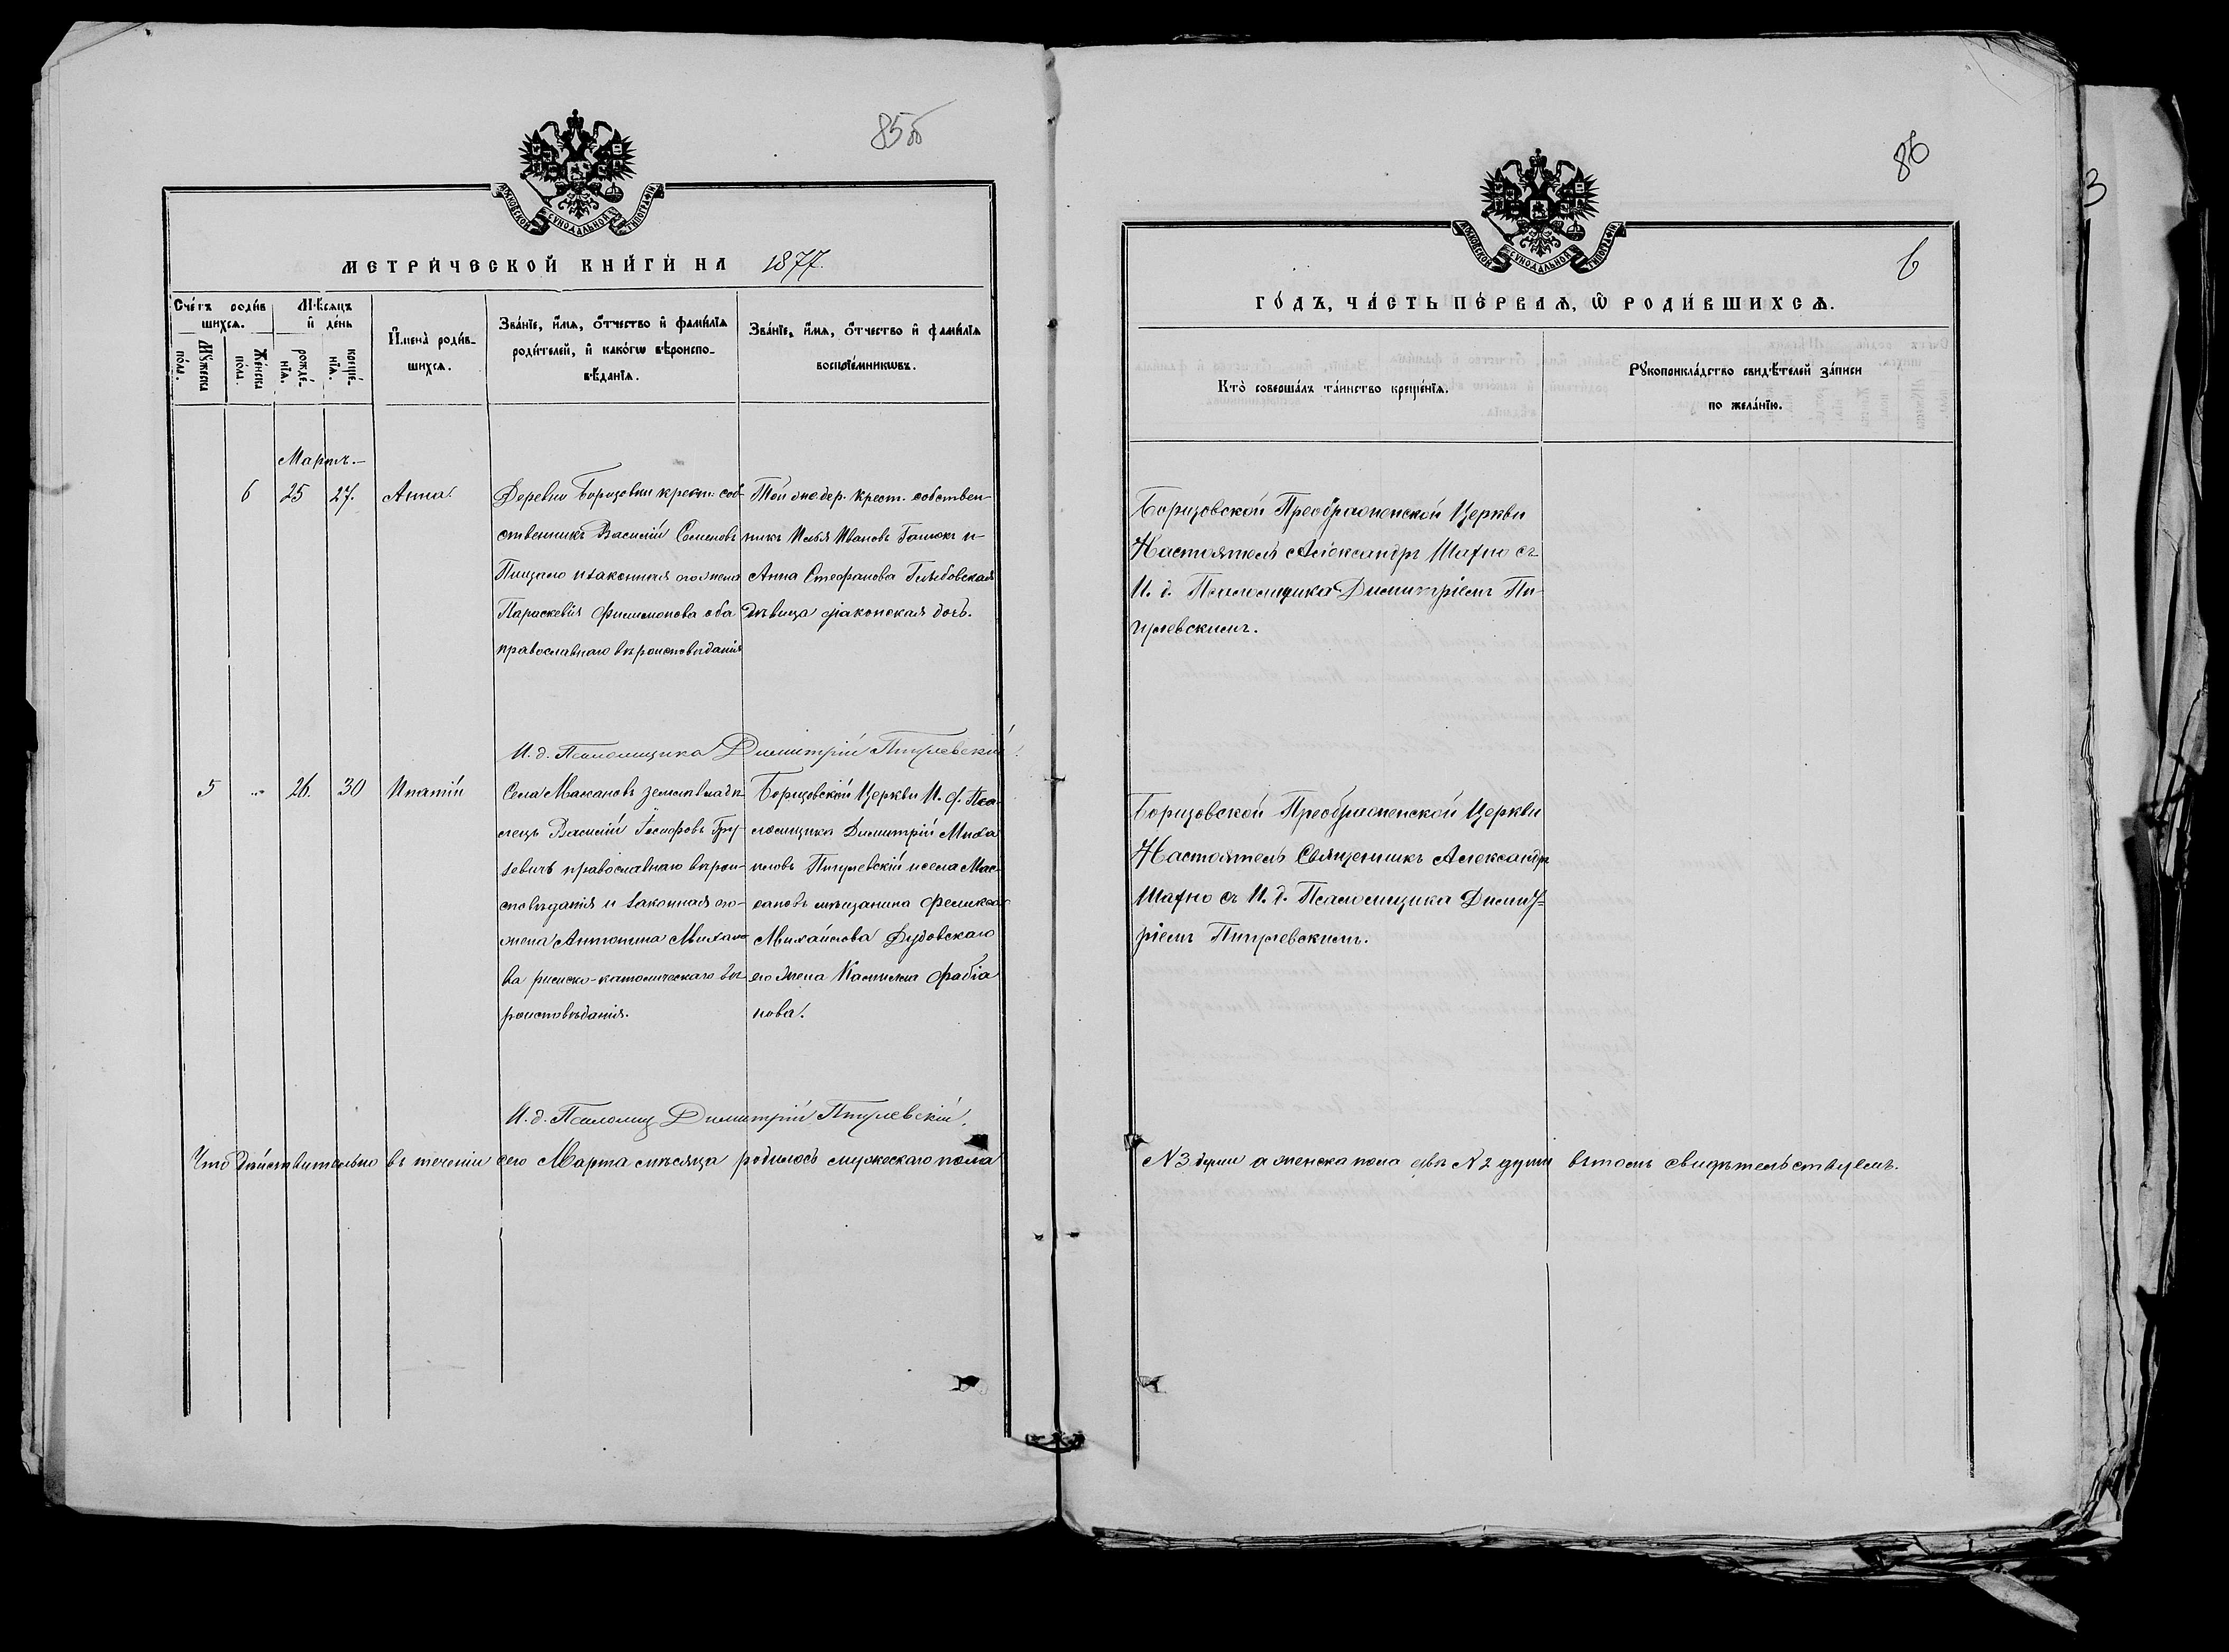 85об
МОСКОВСКОЙ СУНОДАЛЬНОЙ ТИПОГРАФІИ
МЕТРИ́ЧЕСКОЙ КНИ́ГИ НА 1877.
Сче́тъ роди́в
шихсѧ.
Мꙋ́жеска
по́ла.
Же́нска
по́ла.
Мѣ́сѧцъ
и҆ де́нь
рожде́
нїѧ.
креще́
нїѧ.
И҆мена̀ роди́в-
шихсѧ.
Зва́нїе, и҆́мѧ, ѻ҆́тчество и҆ фами́лїѧ
роди́телей, и҆ како́гѡ вѣроиспо-
вѣ́данїѧ.
Зва́нїе, и҆́мѧ, ѻ҆́тчество и҆ фами́лїѧ
воспрїе́мникѡвъ.
Мартъ.
6 25 27. Анна.
Деревни Борщовки крест. соб
ственникъ Василій Семеновъ
и законная его жена
Параскевія Филимонова оба
православнаго вѣроисповѣданія
Той же дер. крест. собствен-
никъ Илья Ивановъ и
Анна Стефанова Глѣбовская
дѣвица діаконская дочь.
И. д. Псаломщика Димитрій Птулевскій.
5 „ 26. 30 Ипатій
Села землевладѣ
лецъ Василій Іосифовъ
православнаго вѣрои-
сповѣданія и законная его
жена Антонина Михало
ва римско-католическаго вѣ
роисповѣданія.
Борщовской Церкви И. д. Пса-
ломщика Димитрій Миха
иловъ Птулевскій и села Мас-
сановъ мѣщанина Феликса
Михайлова Дудовскаго
его жена Камилія Фабіа
нова.
И. д. Псаломщ Димитрій Птулевскій.
Что дѣйствительно въ теченіи сего Марта мѣсяца родилось мужескаго пола
86
6
МОСКОВСКОЙ СУНОДАЛЬНОЙ ТИПОГРАФІИ
ГО́ДЪ, ЧА́СТЬ ПЕ́РВАѦ, Ѡ҆ РОДИ́ВШИХСѦ.
Кто̀ соверша́лъ та́инство креще́нїѧ.
Рꙋкоприкла́дство свидѣ́телей за́писи
по жела́нїю.
Борщовской Преображенской Церкви
Настоятель Александръ Махно съ
И. д. Псаломщика Димитріемъ Пт-
улевскимъ.
Борщовской Преображенской Церкви
Настоятель Священникъ Александръ
Махно съ И. д. Псаломщика Димит-
ріемъ Птулевскимъ.
№ 3 души а женска пола двѣ № 2 души въ томъ свидѣтельствуемъ.